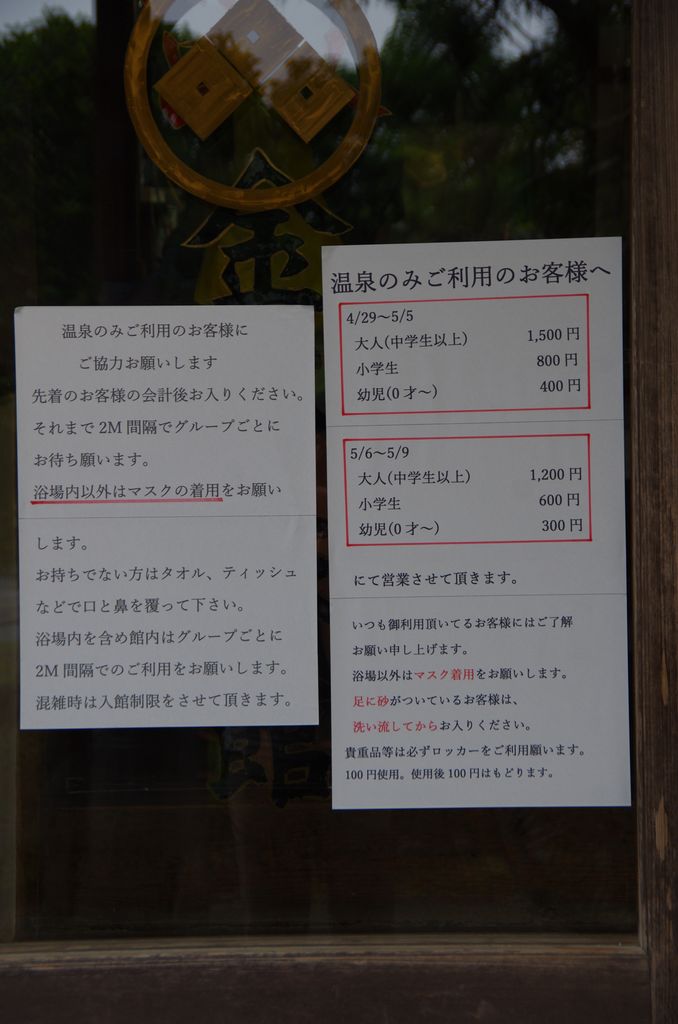 金
館
温泉のみご利用のお客様に
ご協力お願いします
先着のお客様の会計後お入りください。
それまで2M間隔でグループごとに
お待ち願います。
浴場内以外はマスクの着用をお願い
します。
お持ちでない方はタオル、ティッシュ
などで口と鼻を覆って下さい。
浴場内を含め館内はグループごとに
2M間隔でのご利用をお願いします。
混雑時は入館制限をさせて頂きます。
温泉のみご利用のお客様へ
4/29～5/5
大人(中学生以上) 1,500円
小学生 800円
幼児(0才～) 400円
5/6～5/9
大人(中学生以上) 1,200円
小学生 600円
幼児(0才～) 300円
にて営業させて頂きます。
いつも御利用頂いてるお客様にはご了解
お願い申し上げます。
浴場以外はマスク着用をお願いします。
足に砂がついているお客様は、
洗い流してからお入りください。
貴重品等は必ずロッカーをご利用願います。
100円使用。使用後100円はもどります。